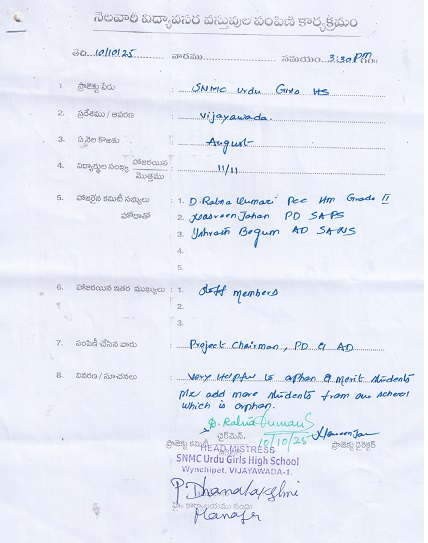 నెలవారీ విద్యావసర వస్తువుల పంపిణీ కార్యక్రమం
తేది. 10/10/25 వారము సమయం. 3:30 PM
1. ప్రాజెక్టు పేరు : SNMC Urdu Girls HS
2. ప్రదేశము / ఆవరణ : Vijayawada.
3. ఏ నెల కొరకు : August
4. విద్యార్థుల సంఖ్య హాజరయిన / మొత్తము : 11/11
5. హాజరైన కమిటీ సభ్యులు : 1. D. Ratna Kumari PCC HM Grade II
హోదాతో 2. Nasreen Jahan PD SAPS
3. Ishrath Begum AD SANS
4.
5.
6. హాజరయిన ఇతర ముఖ్యులు : 1. Staff members
2.
3.
7. పంపిణీ చేసిన వారు : Project Chairman, PD & AD
8. వివరణ / సూచనలు : Very helpful to orphan & merit students
plz add more students from our school
which is orphan.
D. Ratna Kumari
10/10/25
ప్రాజెక్టు కమిటీ ఛైర్మెన్. ప్రాజెక్టు డైరెక్టర్
HEAD MISTRESS
SNMC Urdu Girls High School
Wynchipet, VIJAYAWADA-1.
P. Dhanalakshmi
Manager